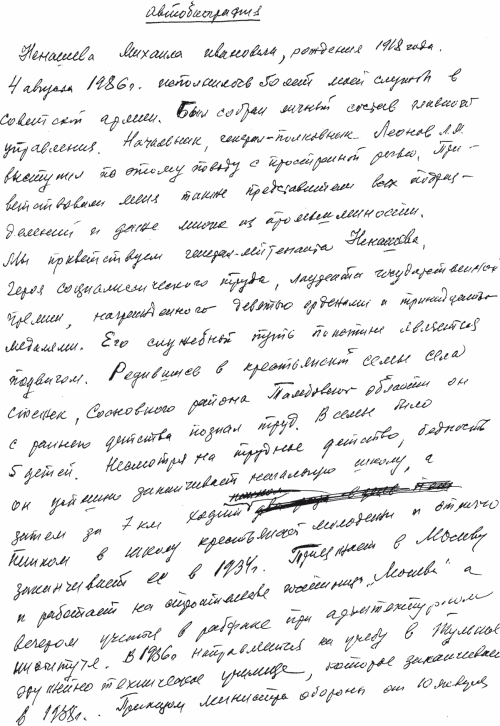 Автобиография
Ненашева Михаила Ивановича, рождения 1918 года.
4 августа 1986г. исполнилось 50 лет моей службы в
советской армии. Был собран личный состав главного
управления. Начальник, генерал-полковник Леонов Л.М.
выступил по этому поводу с пространной речью. При-
ветствовали меня также представители всех подраз-
делений и даже многие из промышленности.
Мы приветствуем генерал-лейтенанта Ненашева,
героя социалистического труда, лауреата государственной
премии, награжденного девятью орденами и тринадцатью
медалями. Его служебный путь поистине является
подвигом. Родившись в крестьянской семье села
Стежек, Сосновского района Тамбовской области он
с раннего детства познал труд. В семье было
5 детей. Несмотря на трудное детство, бедность
он успешно заканчивает начальную школу, а
затем за 7 км ходит
пешком в школу крестьянской молодежи и отлично
заканчивает ее в 1934г. Приезжает в Москву
и работает на строительстве гостиницы „Москва" а
вечером учится в рабфаке при архитектурном
институте. В 1936г направляется на учебу в Тульское
оружейно техническое училище, которое заканчивает
в 1938г.. Приказом министра обороны от 10 января